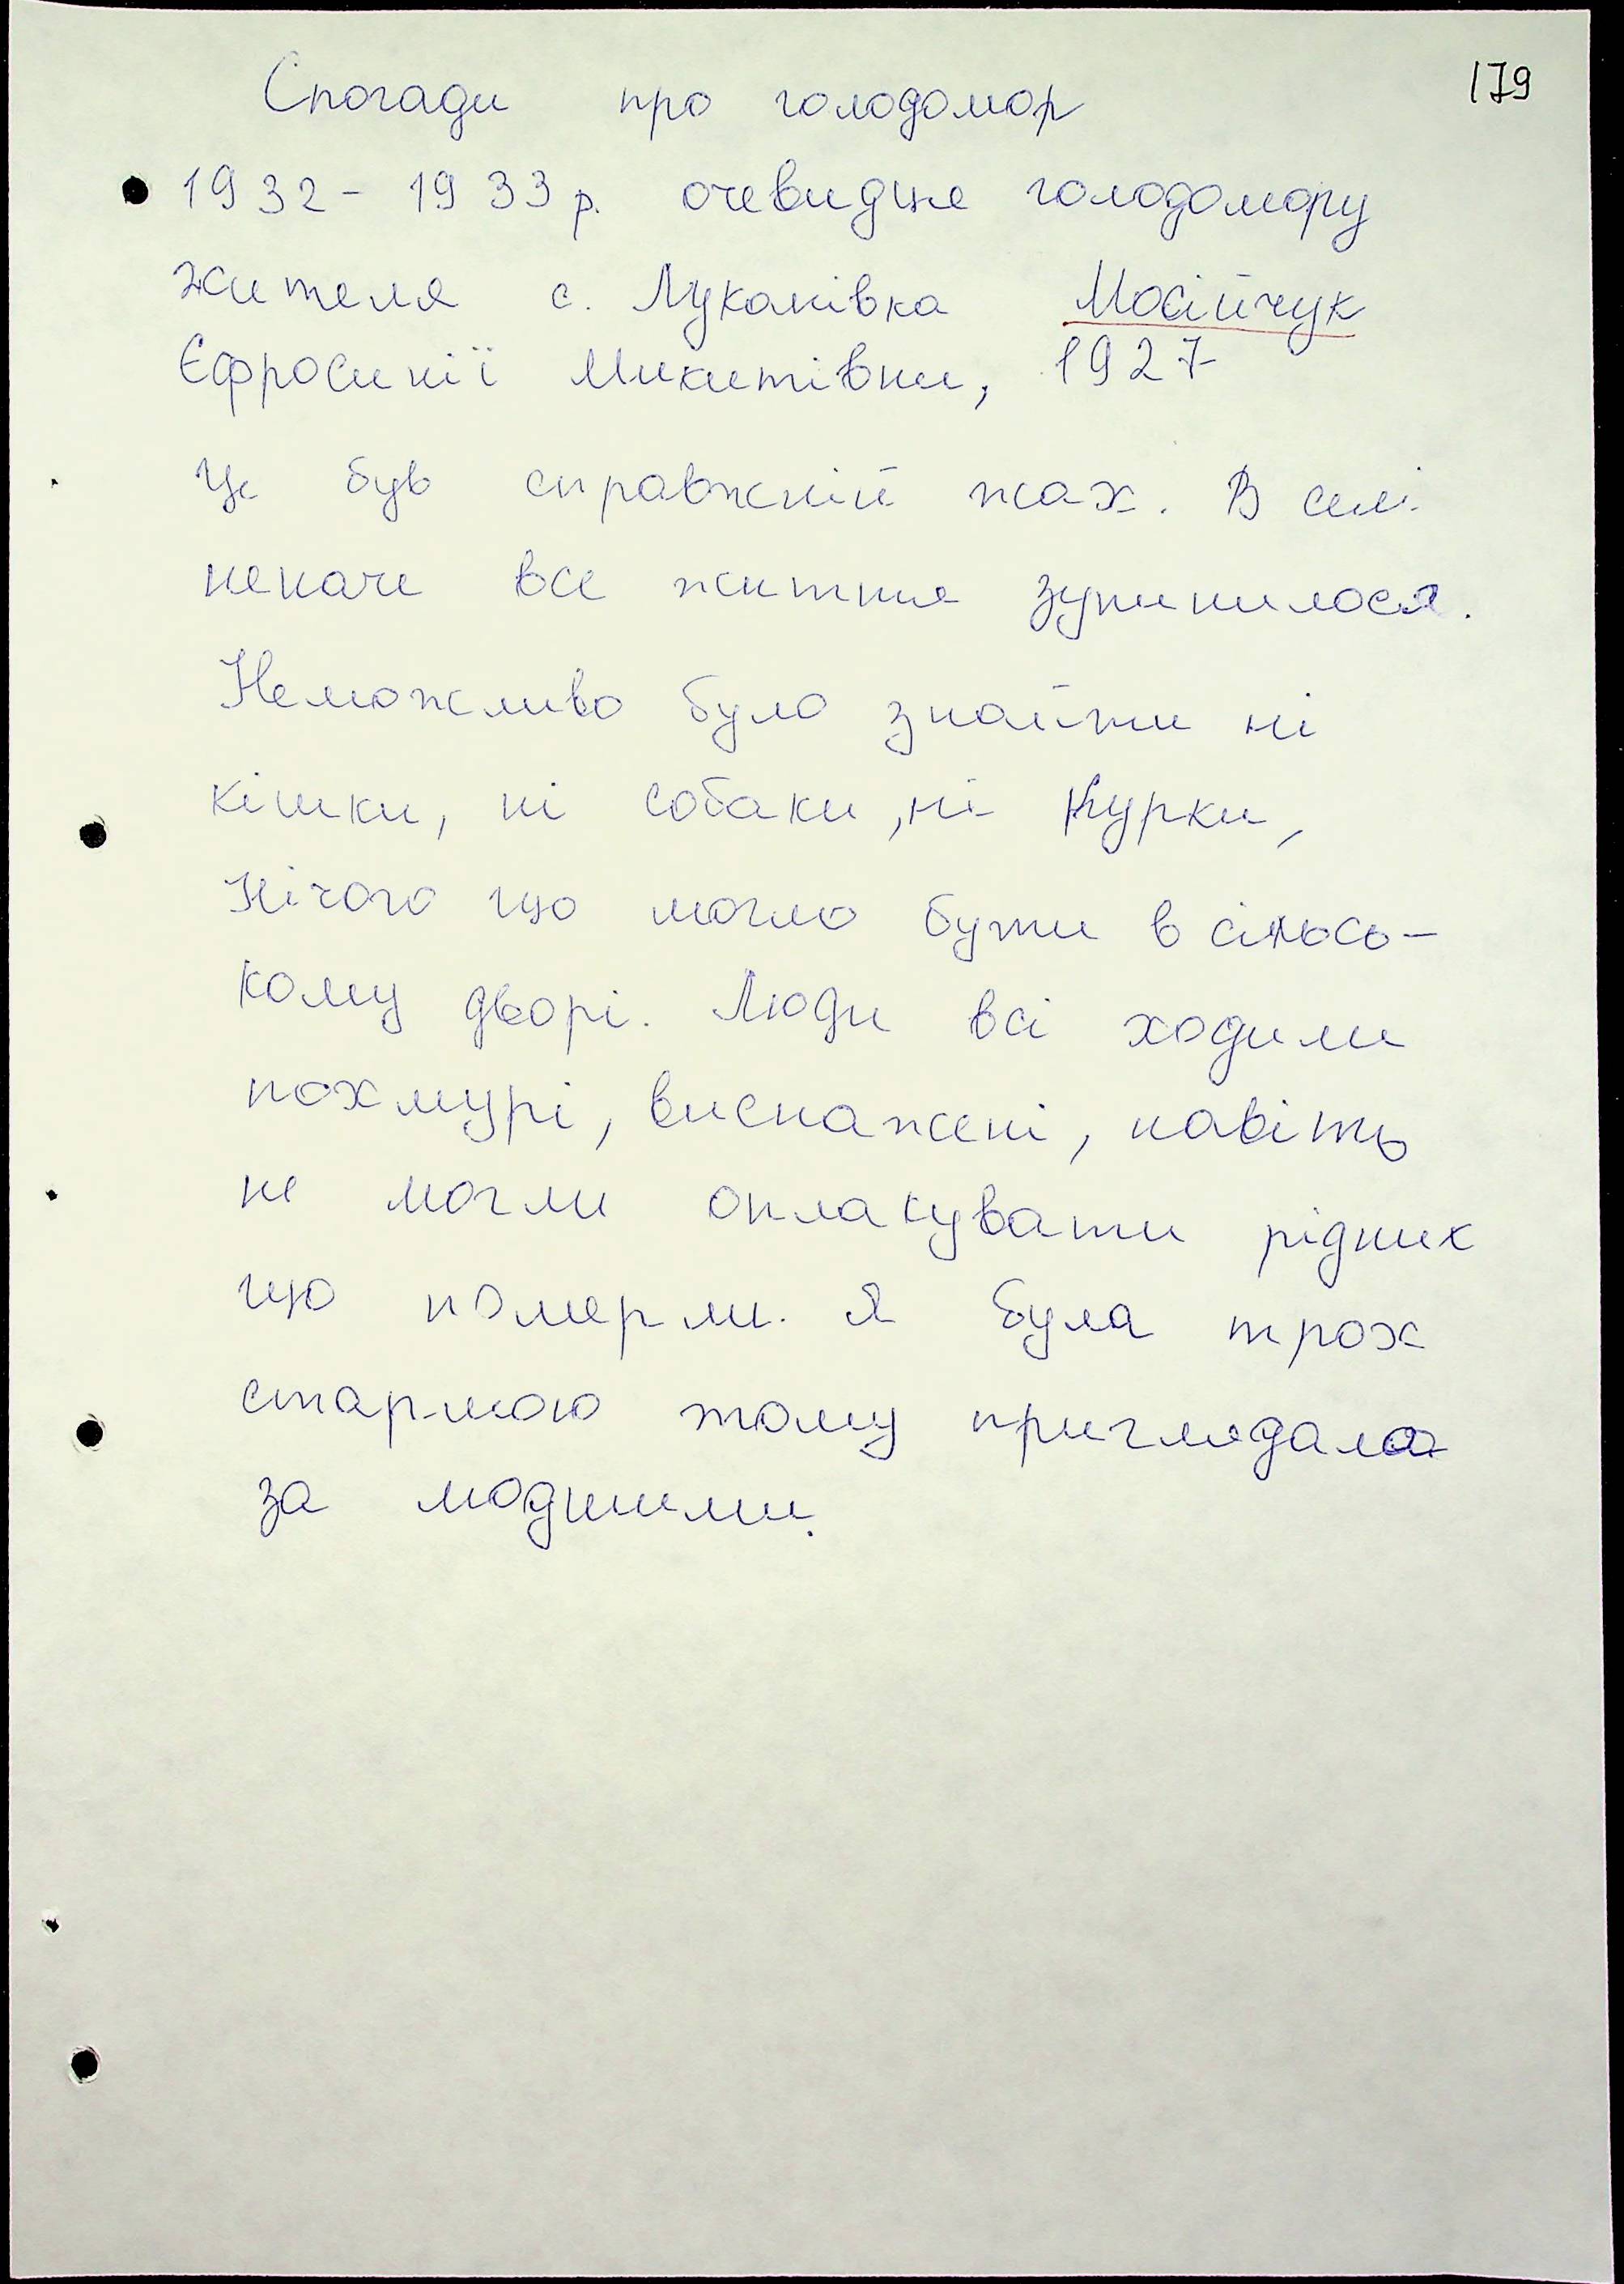 179
Спогади про голодомор
1932-1933 р. очевидця голодомору
жителя с. Луканівка Мосійчук
Єфросинії Микитівни, 1927
Це був справжній жах. В селі
неначе все життя зупинилося.
Неможливо було знайти ні
кішки, ні собаки, ні курки,
Нічого що могло бути в сільсь-
кому дворі. Люди всі ходили
похмурі, виснажені, навіть
не могли оплакувати рідних
що померли. Я була трох
старшою тому приглядала
за модшими.